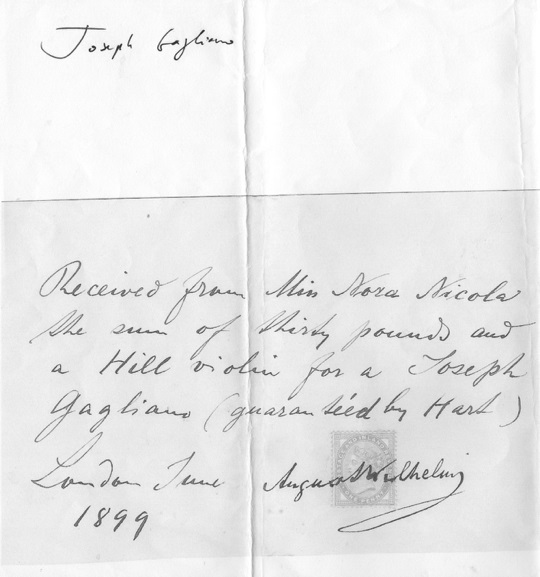 Joseph Gagliano
Received from Miss Nora Nicola
the sum of thirty pounds and
a Hill violin for a Joseph
Gagliano (guarantéed by Hart)
London June August Wilhelmj
1899